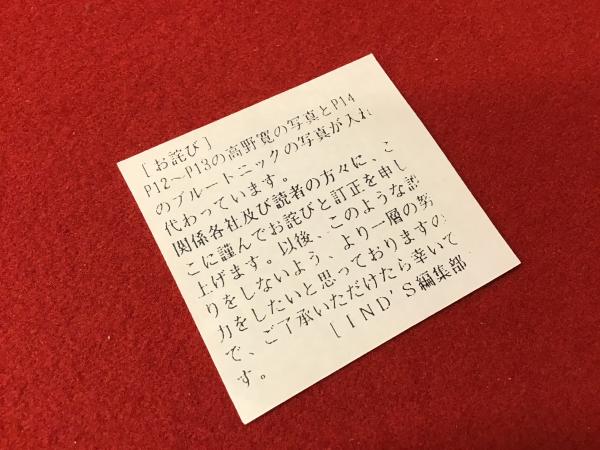 [お詫び]
P12～P13の高野寛の写真とP14
のプルートニックの写真が入れ
代わっています。
関係各社及び読者の方々に、こ
こに謹んでお詫びと訂正を申し
上げます。以後、このような誤
りをしないよう、より一層の努
力をしたいと思っておりますの
で、ご了承いただけたら幸いで
す。
[IND'S編集部